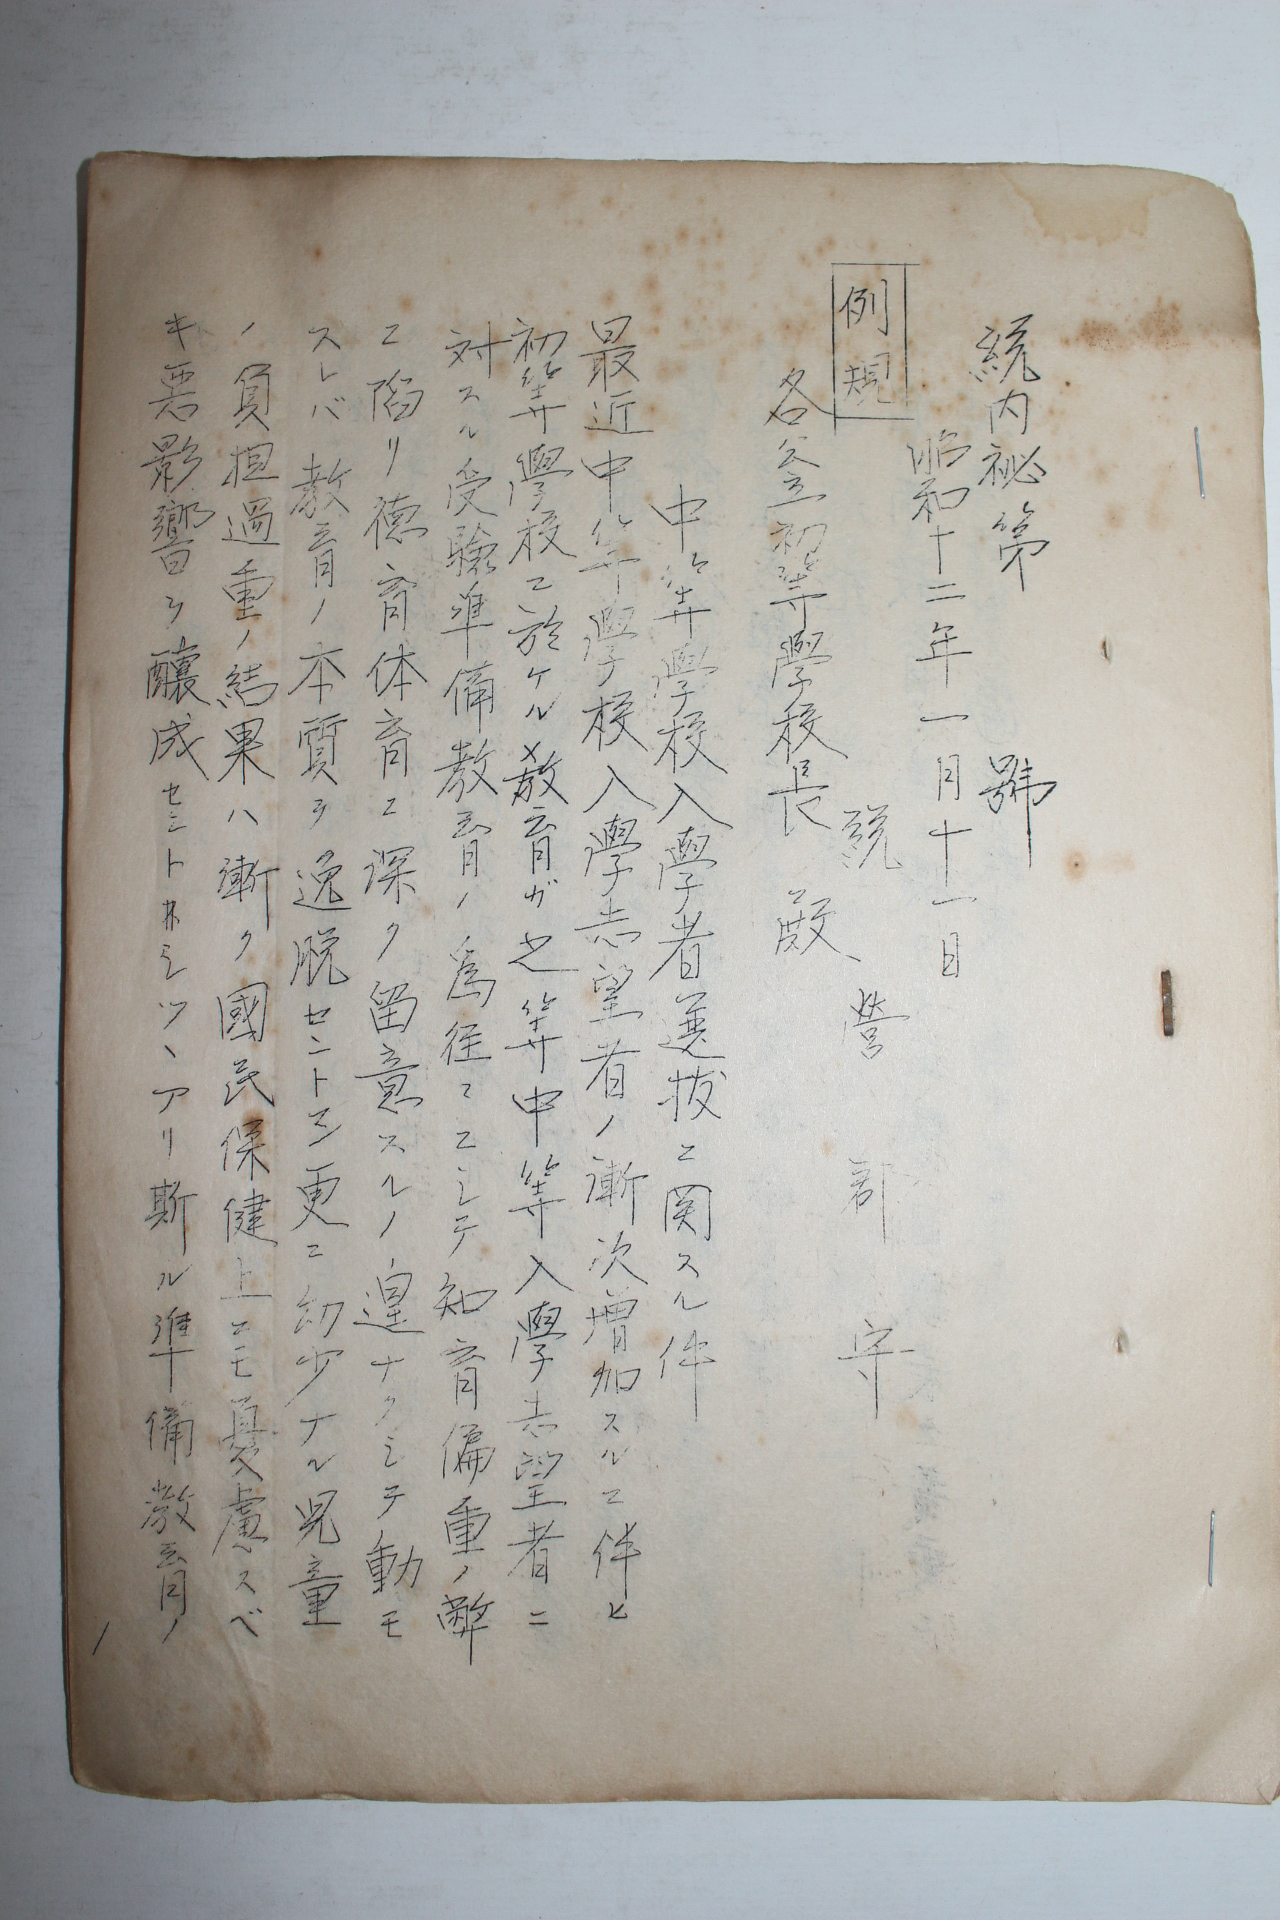 統内祕第　　　號
昭和十二年一月十一日
例規
統營郡守
各公立初等學校長殿
中等學校入學者選拔ニ関スル件
最近中等學校入學志望者ノ漸次増加スルニ伴ヒ
初等學校ニ於ケル教育ガ之等中等入學志望者ニ
対スル受驗準備教育ノ爲徃々ニシテ知育偏重ノ弊
ニ陷リ德育体育ニ深ク留意スルノ遑ナクシテ動モ
スレバ教育ノ本質ヲ逸脱セントシ更ニ幼少ナル児童
ノ負担過重ノ結果ハ漸ク國民保健上ニモ憂慮スベ
キ悪影響ヲ釀成セントスル アリ斯ル準備教育ノ